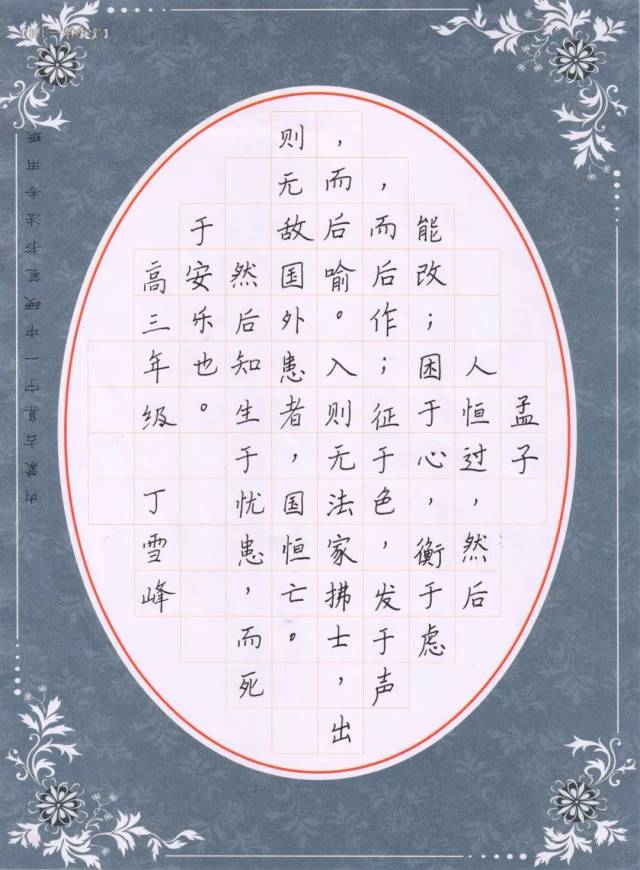 孟子
人恒过，然后
能改；困于心，衡于虑
，而后作；征于色，发于声
，而后喻。入则无法家拂士，出
则无敌国外患者，国恒亡。
然后知生于忧患，而死
于安乐也。
高三年级 丁雪峰
内蒙古集宁一中硬笔书法专用纸